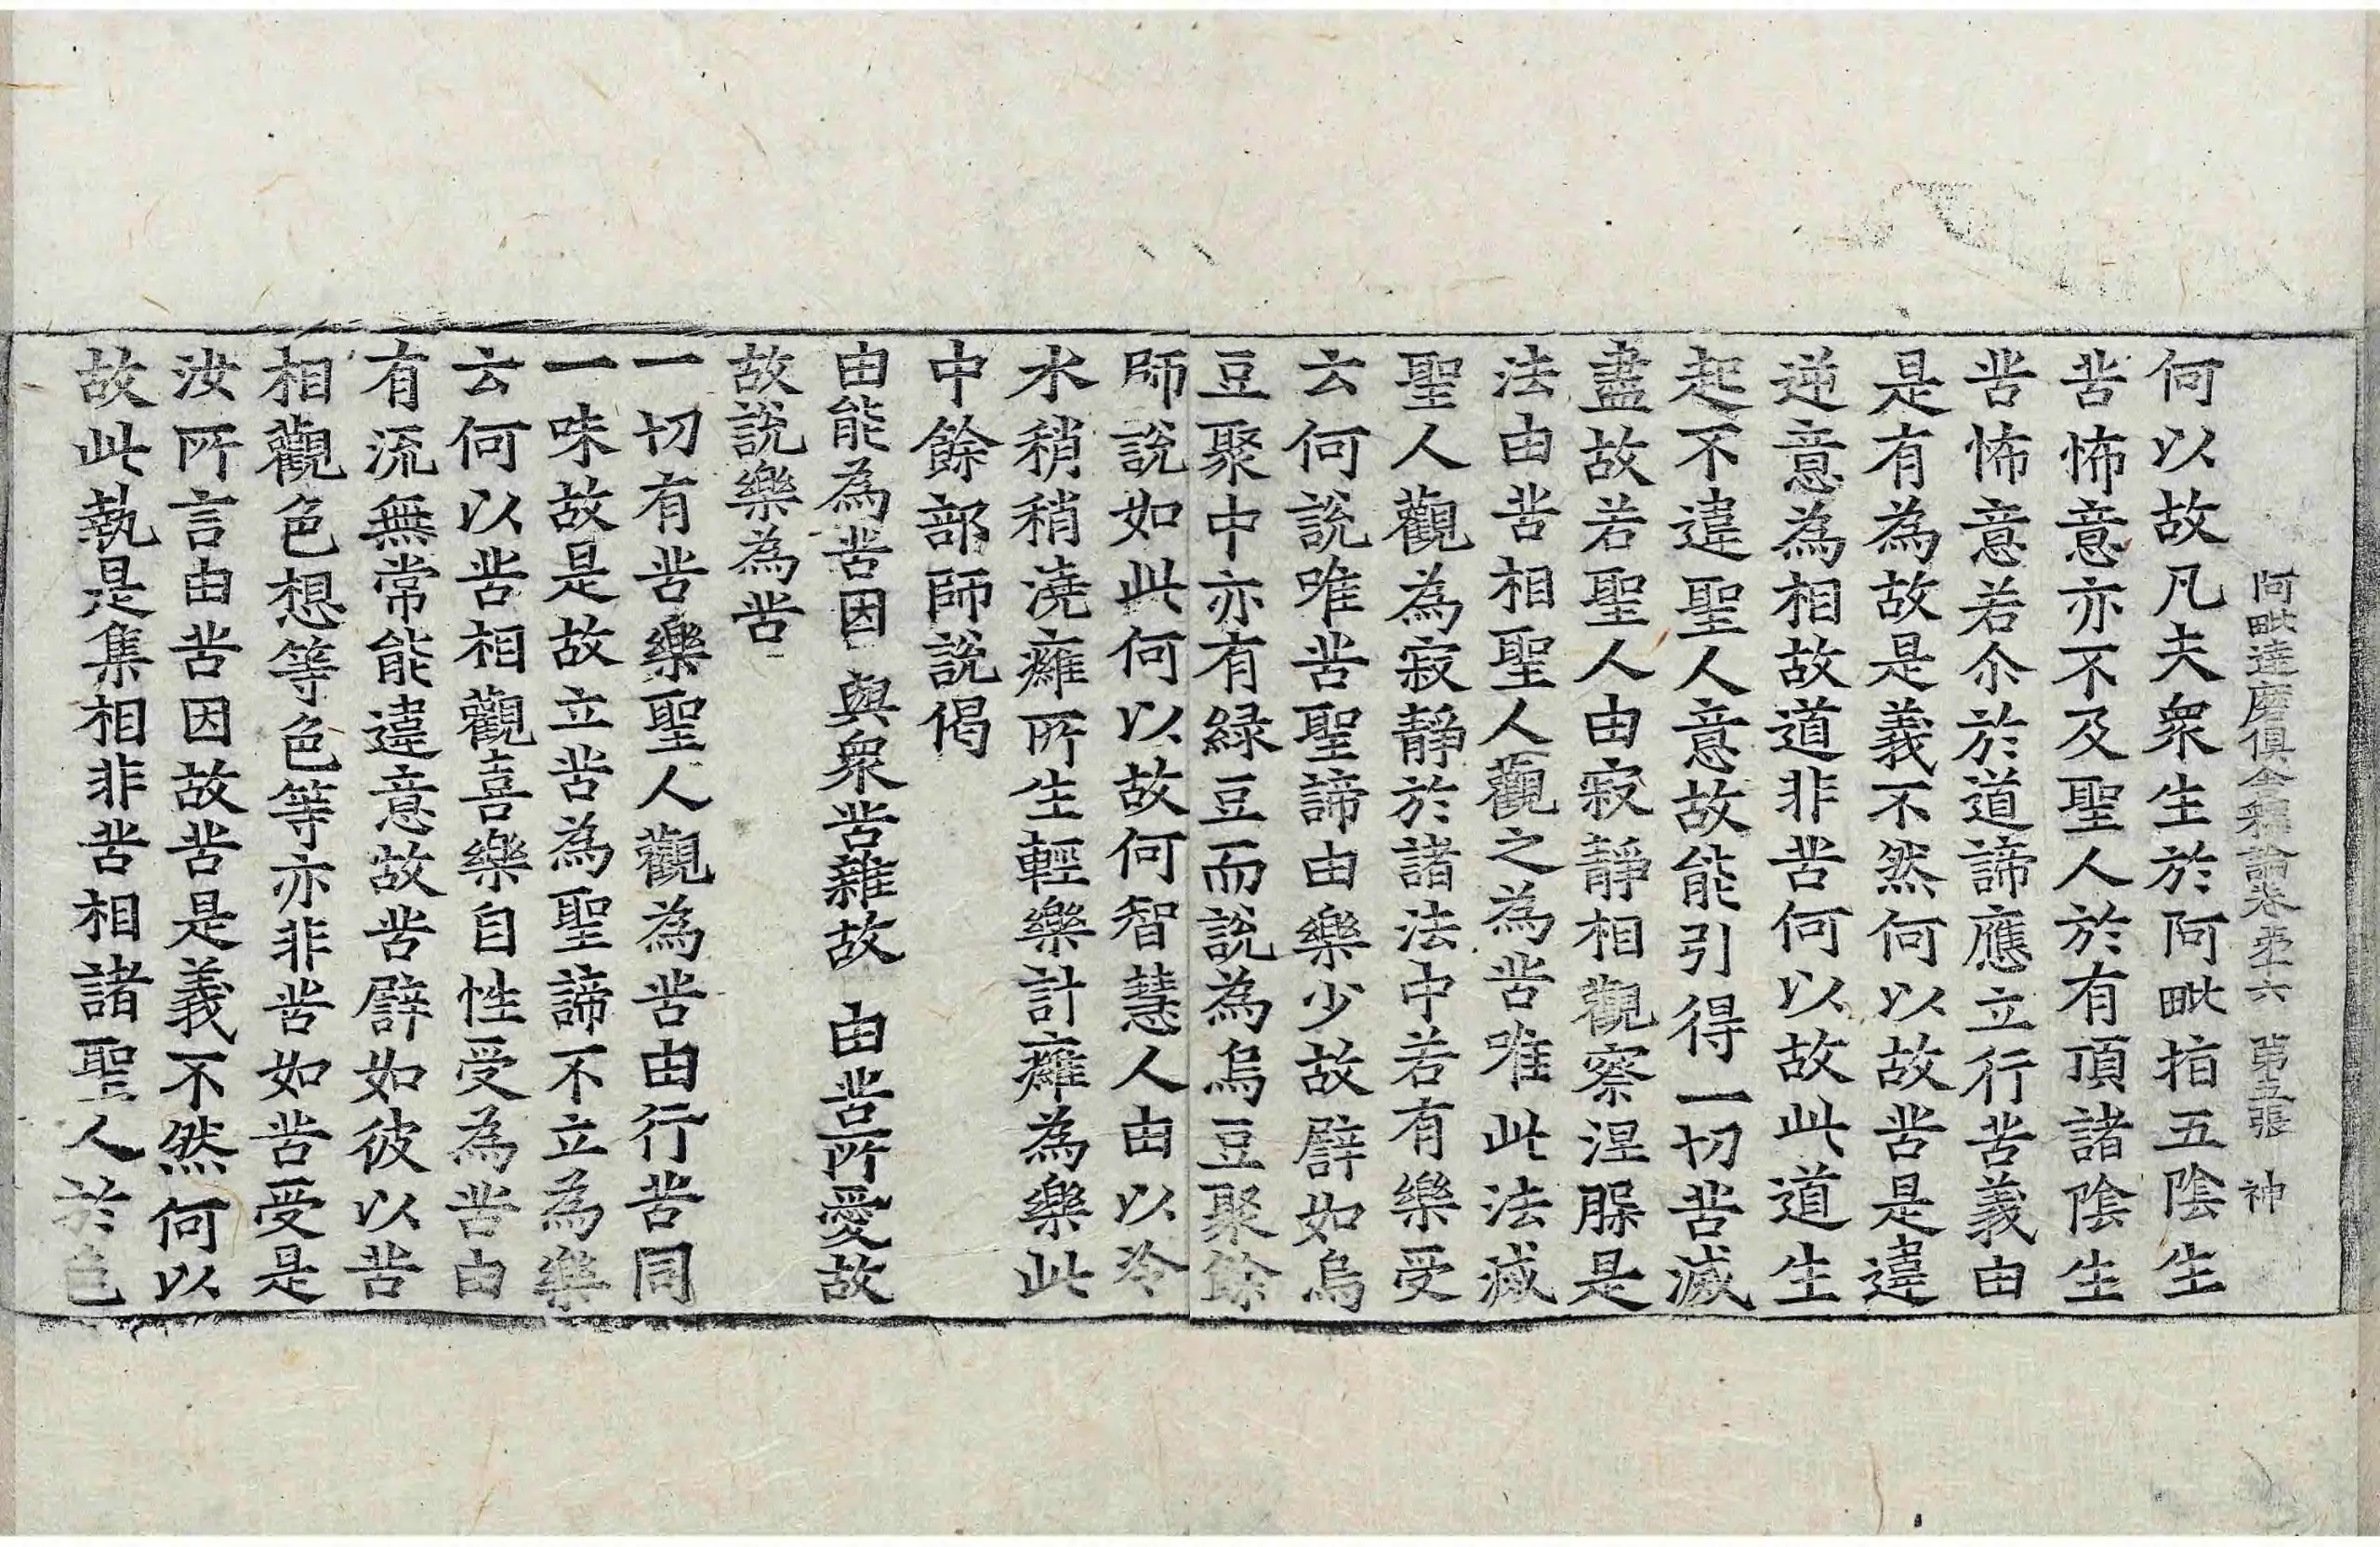 阿毗達磨俱舍釋論卷第十六 第五張 神
何以故凡夫衆生於阿毗指五陰生
苦怖意亦不及聖人於有頂諸陰生
苦怖意若尒於道諦應立行苦義由
是有為故是義不然何以故苦是違
逆意為相故道非苦何以故此道生
起不違聖人意故能引得一切苦滅
盡故若聖人由寂靜相觀察涅槃是
法由苦相聖人觀之為苦唯此法滅
聖人觀為寂靜於諸法中若有樂受
云何說唯苦聖諦由樂少故譬如烏
豆聚中亦有緑豆而說為烏豆聚餘
師說如此何以故何智慧人由以冷
水稍稍澆癰所生輕樂計癰為樂此
中餘部師說偈
由能為苦因 與衆苦雜故 由苦所愛故
故說樂為苦
一切有苦樂聖人觀為苦由行苦同
一味故是故立苦為聖諦不立為樂
云何以苦相觀喜樂自性受為苦由
有流無常能違意故苦譬如彼以苦
相觀色想等色等亦非苦如苦受是
汝所言由苦因故苦是義不然何以
故此執是集相非苦相諸聖人於色